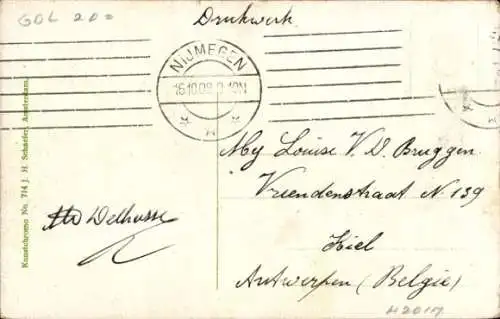 GDL 20=
Drukwerk
NIJMEGEN
16.10.09 9-10N
Mej Louise V. D. Bruggen
Vriendenstraat N. 139
Kiel
Antwerpen (Belgie)
Delhasse
Kunstchromo No. 714 J. H. Schaefer, Amsterdam.
H2017